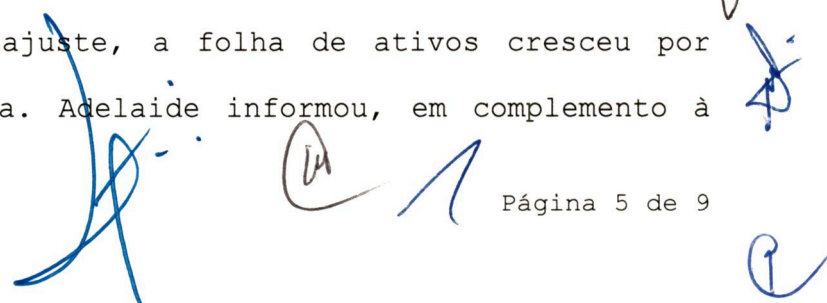 ajuste, a folha de ativos cresceu por
a. Adelaide informou, em complemento à
Página 5 de 9